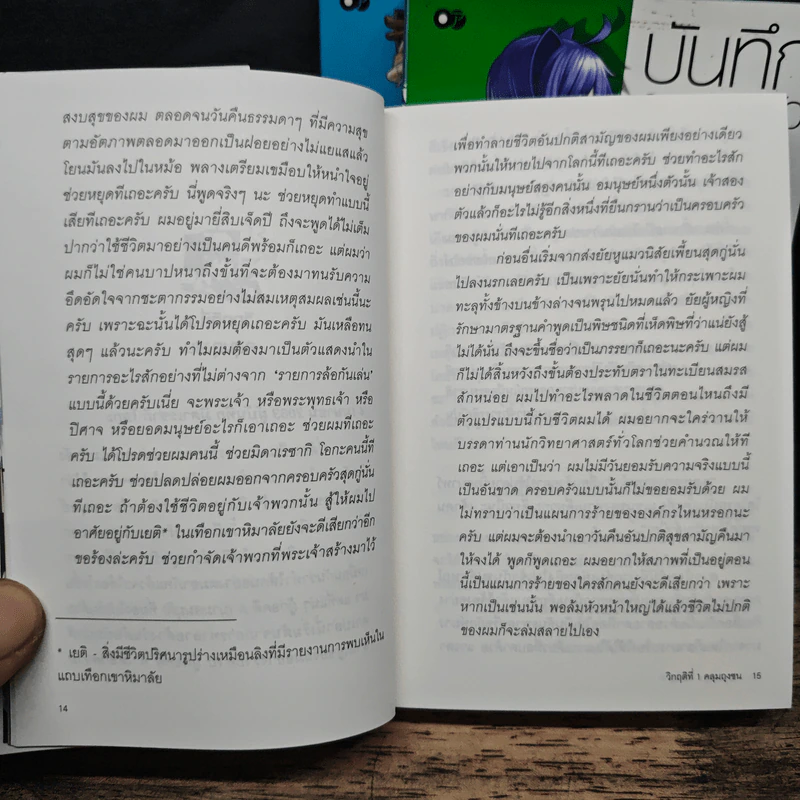 บันทึก
สงบสุขของผม ตลอดจนวันคืนธรรมดาๆ ที่มีความสุข
ตามอัตภาพตลอดมาออกเป็นฝอยอย่างไม่แยแสแล้ว
โยนมันลงไปในหม้อ พลางเตรียมเขมือบให้หนำใจอยู่
ช่วยหยุดทีเถอะครับ นี่พูดจริงๆ นะ ช่วยหยุดทำแบบนี้
เสียทีเถอะครับ ผมอยู่มายี่สิบเจ็ดปี ถึงจะพูดได้ไม่เต็ม
ปากว่าใช้ชีวิตมาอย่างเป็นคนดีพร้อมก็เถอะ แต่ผมว่า
ผมก็ไม่ใช่คนบาปหนาถึงขั้นที่จะต้องมาทนรับความ
อึดอัดใจจากชะตากรรมอย่างไม่สมเหตุสมผลเช่นนี้นะ
ครับ เพราะฉะนั้นได้โปรดหยุดเถอะครับ มันเหลือทน
สุดๆ แล้วนะครับ ทำไมผมต้องมาเป็นตัวแสดงนำใน
รายการอะไรสักอย่างที่ไม่ต่างจาก 'รายการล้อกันเล่น'
แบบนี้ด้วยครับเนี่ย จะพระเจ้า หรือพระพุทธเจ้า หรือ
ปีศาจ หรือยอดมนุษย์อะไรก็เอาเถอะ ช่วยผมทีเถอะ
ครับ ได้โปรดช่วยผมคนนี้ ช่วยมิดาเรซากิ โอกะคนนี้ที
เถอะครับ ช่วยปลดปล่อยผมออกจากครอบครัวสุดกู่นั่น
ทีเถอะ ถ้าต้องใช้ชีวิตอยู่กับเจ้าพวกนั้น สู้ให้ผมไป
อาศัยอยู่กับเยติ* ในเทือกเขาหิมาลัยยังจะดีเสียกว่าอีก
ขอร้องล่ะครับ ช่วยกำจัดเจ้าพวกที่พระเจ้าสร้างมาไว้
* เยติ - สิ่งมีชีวิตปริศนารูปร่างเหมือนลิงที่มีรายงานการพบเห็นใน
แถบเทือกเขาหิมาลัย
14
เพื่อทำลายชีวิตอันปกติสามัญของผมเพียงอย่างเดียว
พวกนั้นให้หายไปจากโลกนี้ทีเถอะครับ ช่วยทำอะไรสัก
อย่างกับมนุษย์สองคนนั้น อมนุษย์หนึ่งตัวนั้น เจ้าสอง
ตัวแล้วก็อะไรไม่รู้อีกสิ่งหนึ่งที่ยืนกรานว่าเป็นครอบครัว
ของผมนั่นทีเถอะครับ
ก่อนอื่นเริ่มจากส่งยัยหูแมวนิสัยเพี้ยนสุดกู่นั่น
ไปลงนรกเลยครับ เป็นเพราะยัยนั่นทำให้กระเพาะผม
ทะลุทั้งข้างบนข้างล่างจนพรุนไปหมดแล้ว ยัยผู้หญิงที่
รักษามาตรฐานคำพูดเป็นพิษชนิดที่เห็ดพิษที่ว่าแน่ยังสู้
ไม่ได้นั่น ถึงจะขึ้นชื่อว่าเป็นภรรยาก็เถอะนะครับ แต่ผม
ก็ไม่ได้สิ้นหวังถึงขั้นต้องประทับตราในทะเบียนสมรส
สักหน่อย ผมไปทำอะไรพลาดในชีวิตตอนไหนถึงมี
ตัวแปรแบบนี้กับชีวิตผมได้ ผมอยากจะใคร่วานให้
บรรดาท่านนักวิทยาศาสตร์ทั่วโลกช่วยคำนวณให้ที
เถอะ แต่เอาเป็นว่า ผมไม่มีวันยอมรับความจริงแบบนี้
เป็นอันขาด ครอบครัวแบบนั้นก็ไม่ขอยอมรับด้วย ผม
ไม่ทราบว่าเป็นแผนการร้ายขององค์กรไหนหรอกนะ
ครับ แต่ผมจะต้องนำเอาวันคืนอันปกติสุขสามัญคืนมา
ให้จงได้ พูดก็พูดเถอะ ผมอยากให้สภาพที่เป็นอยู่ตอน
นี้เป็นแผนการร้ายของใครสักคนยังจะดีเสียกว่า เพราะ
หากเป็นเช่นนั้น พอล้มหัวหน้าใหญ่ได้แล้วชีวิตไม่ปกติ
ของผมก็จะล่มสลายไปเอง
วิกฤติที่ 1 คลุมถุงชน 15